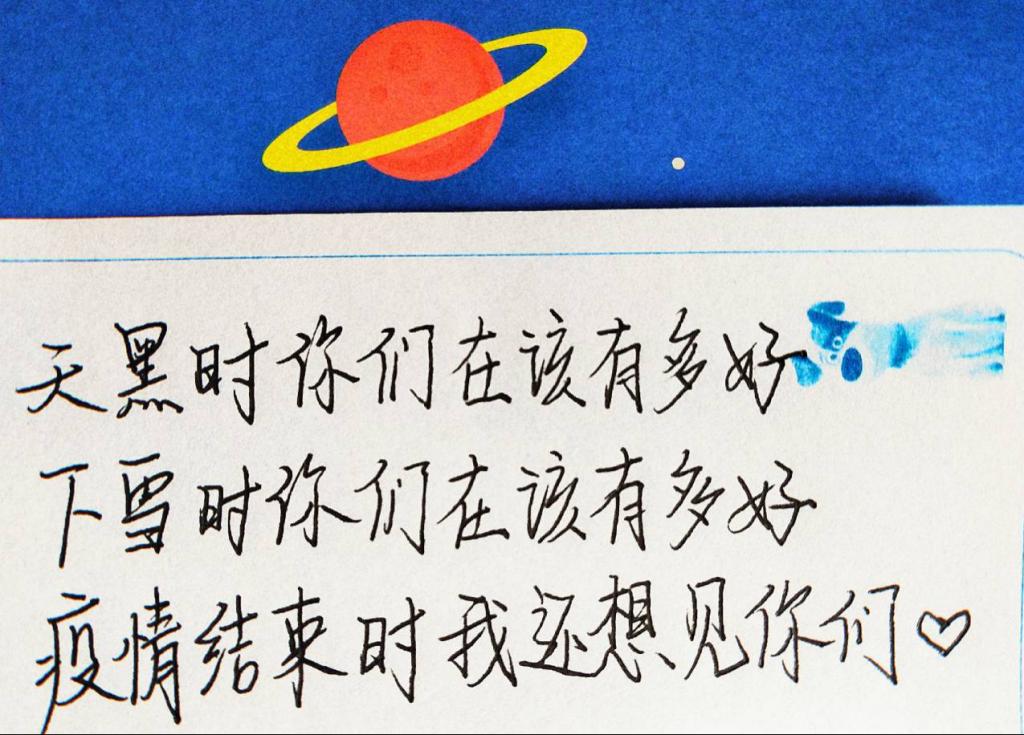 天黑时你们在该有多好
下雪时你们在该有多好
疫情结束时我还想见你们♡